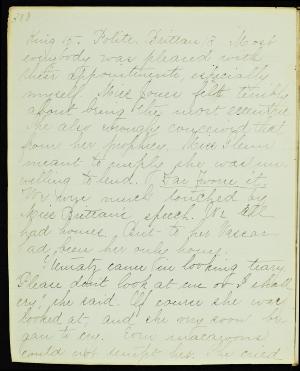 King is. Polite, Brittan, is Most
everybody was pleased with
their appointments, especially
myself. Miss Jones felt terribly
about being the most eccentric
She also wrongly conceived that
from her prophecy, Miss
meant to imply she was un
willing to lend. Far from it,
We were much touched by
Miss Brittan's speech. We all
had homes, But to her Vassar
had been her only home.
came in looking teary
Please don't look at me or I shall
cry", she said Of course she was
looked at, and she very soon be
gan to cry. Even macaroons
could not tempt her. She cried